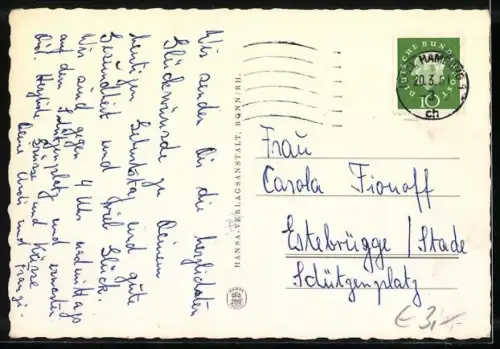 Wir senden Dir die herzlichsten
Glückwünsche zu Deinem
heutigen Geburtstag und gute
Gesundheit und viel Glück.
Wir sind gegen 4 Uhr nachmittags
auf dem Schützenplatz und erwarten
Dich. Herzliche Grüsse und Küsse
Deine und Franzi.
HANSA-VERLAGSANSTALT, BONN/RH.
DEUTSCHE BUNDESPOST
10
HAMBURG
20.3.
ch
Frau
Carola Fionoff
Estebrügge / Stade
Schützenplatz
€ 3,-